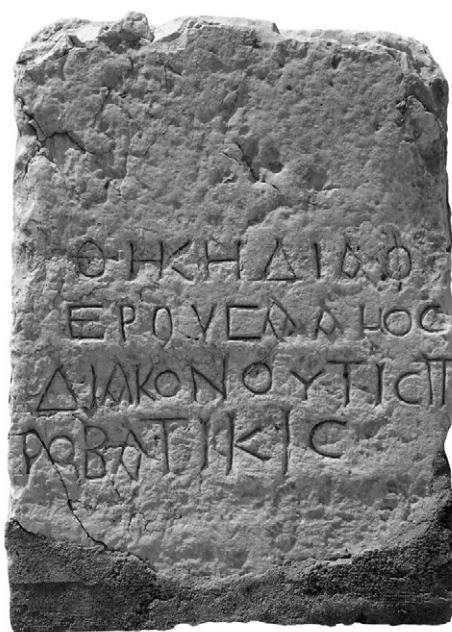 ΘΗΚΗΔΙΑΦ
ΕΡΟΥCΑΑΜΟC
ΔΙΑΚΟΝΟΥΤΙCΠ
ΡΟΒΑΤΙΚΙC